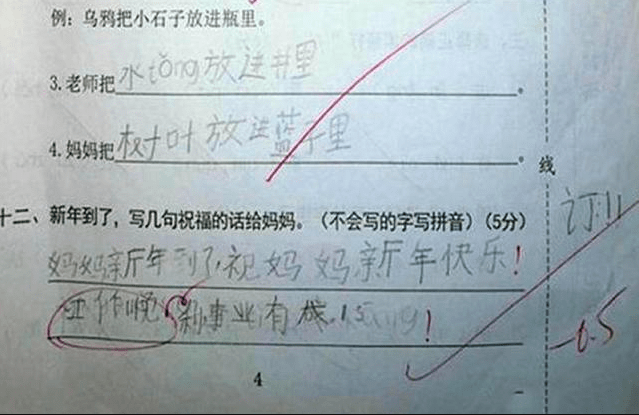 例：乌鸦把小石子放进瓶里。
3.老师把水tǒng放进井里。
4.妈妈把树叶放进蓝子里。
线
十二、新年到了，写几句祝福的话给妈妈。（不会写的字写拼音）（5分）
订11
妈妈新年到了,祝妈妈新年快乐！
事业有成！
-0.5
4